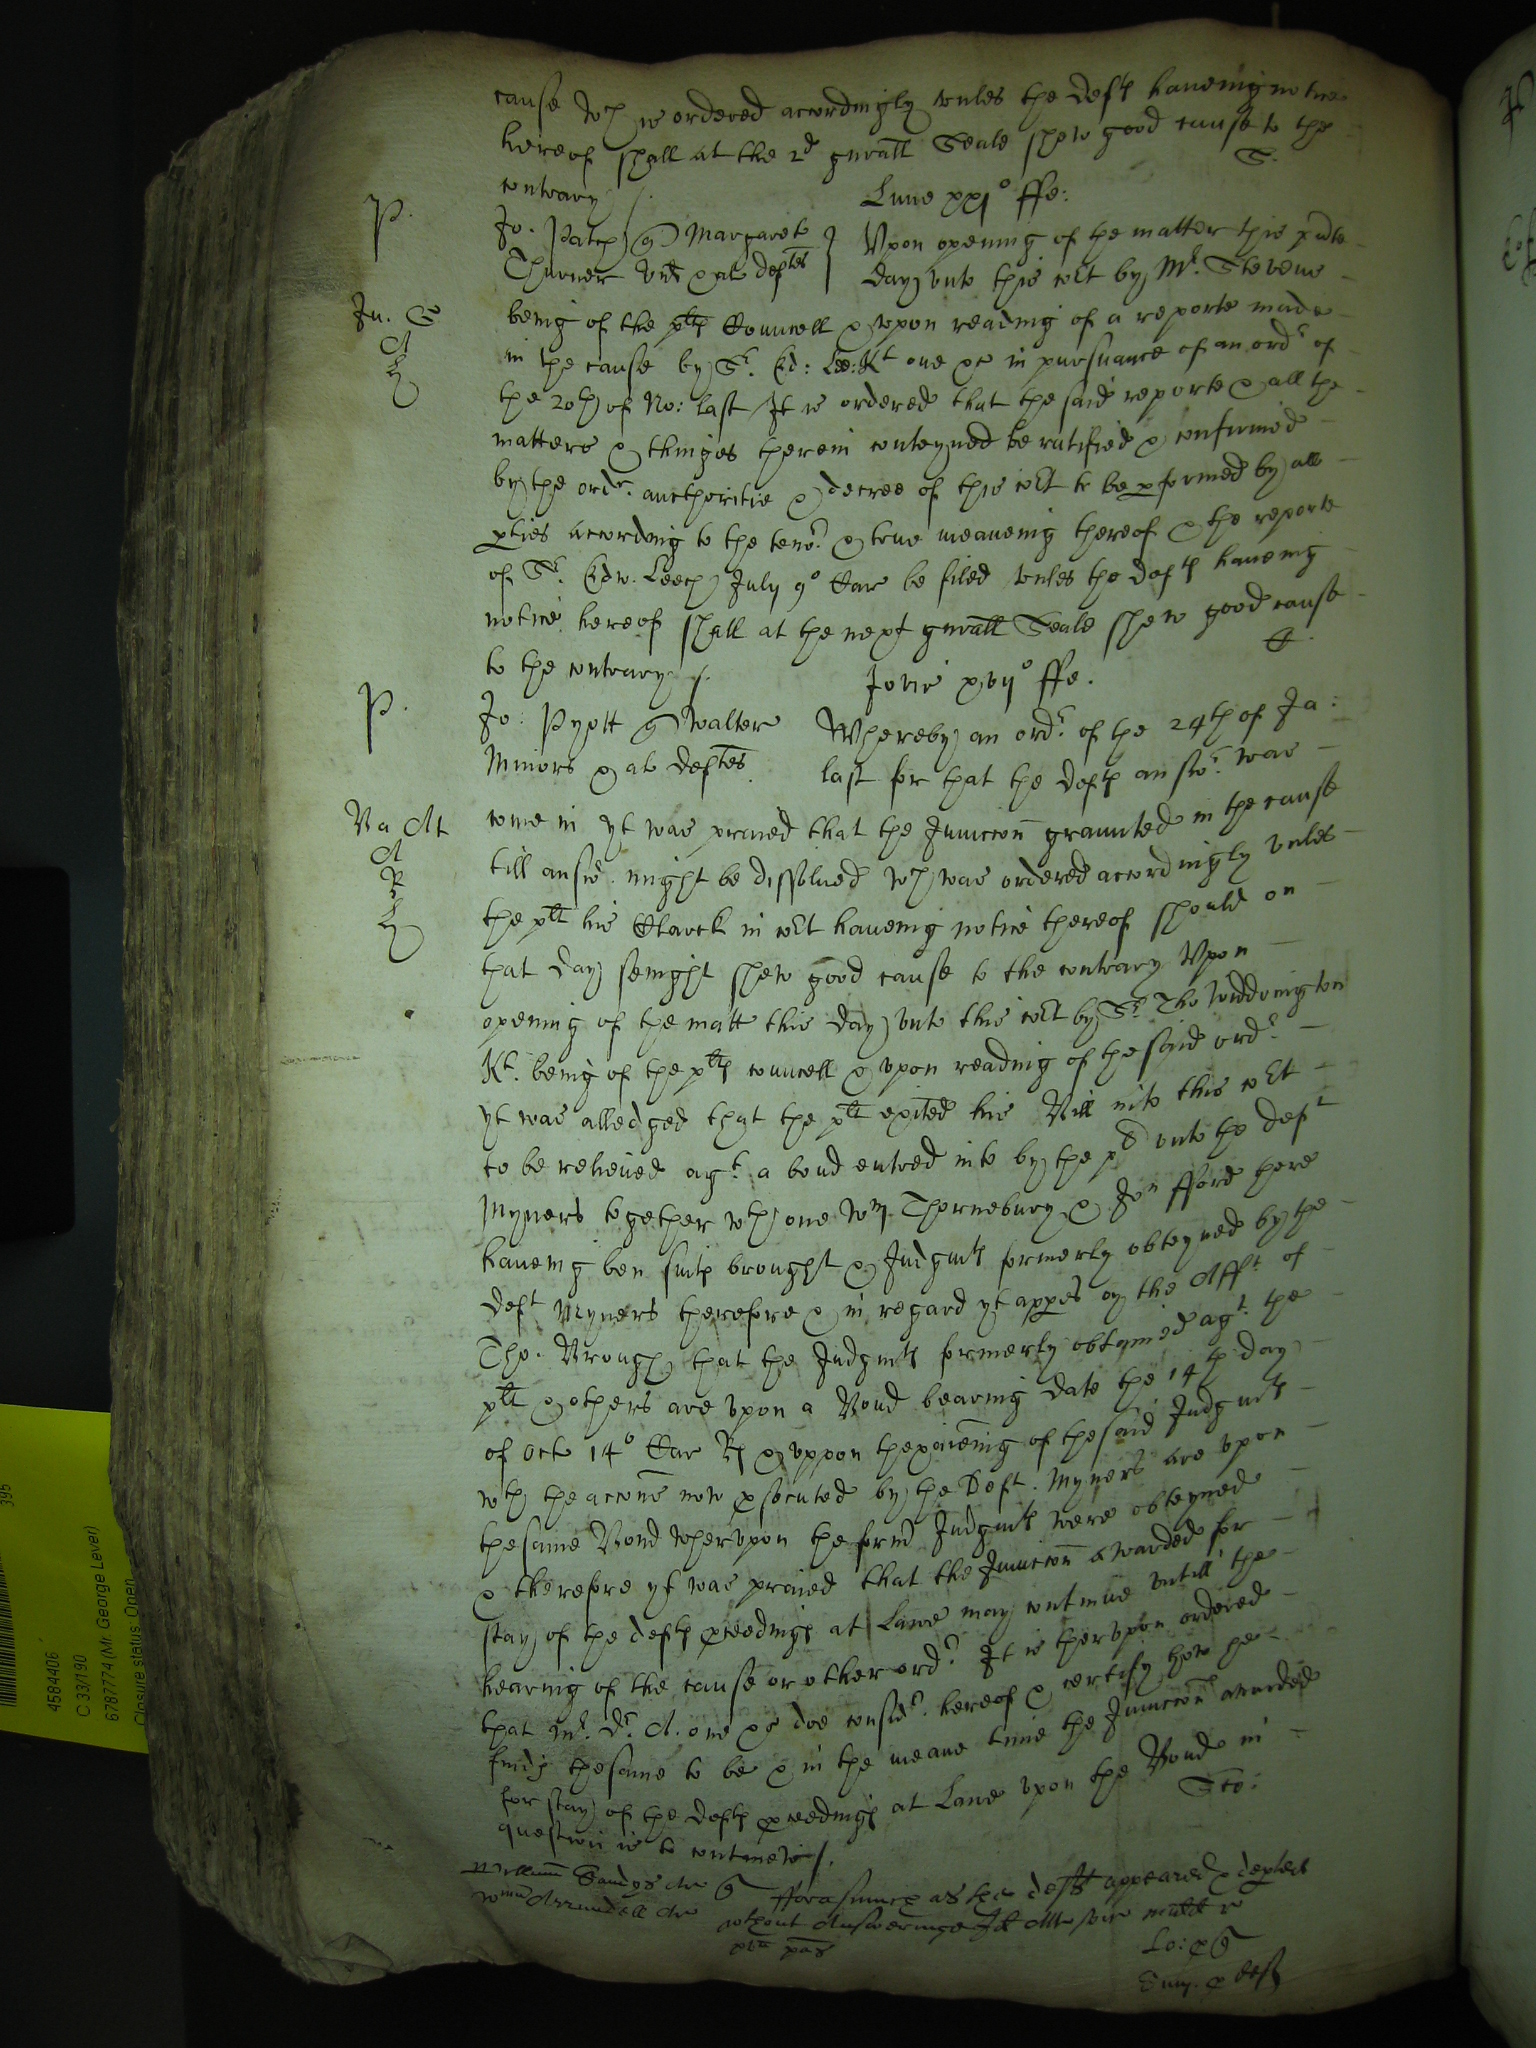 cause wch is ordered accordingly unles the defts haueing notice
hereof shall at the 2d gnrall Seale shew good cause to the
contrary /. S.
Lune xxj° ffe:
P.
Jo. Patch q Margarete } Vpon opening of the matter this pnte
Thurner vid & al deftes } day vnto this cort by Mr. Stevens
Ju. G
A
being of the plts Councell & vpon reading of a reporte made
in the cause by Sr. Ed: Lee: Kt one &c in pursuance of an ordr of
the 20th of No: last It is ordered that the said reporte & all the
matters & thinges therein conteyned be ratified & confirmed
by the ordr. aucthoritie & decree of this cort to be pformed by all
pties according to the tenor. & true meaneing thereof & the reporte
of Sr. Edw. Leech July 9° Car be filed vnles the defts haueing
notice hereof shall at the next gnrall Seale shew good cause
to the contrary /. C.
Jovis xvij° ffe.
P.
Jo: Pyott q Walter Whereby an ordr. of the 24th of Ja:
Minors & al deftes. last for that the defts answr. was
Va At
A
R
come in yt was praied that the Iniuccon graunted in the cause
till answr. might be dissolued wch was ordered accordingly vnles
the plt his Clarck in cort haueing notice thereof should on
that day senight shew good cause to the contrary Vpon
opening of the matt this day vnto this cort by Sr. Tho Widdrington
Kt. being of the plts councell & vpon reading of the said ordr.
yt was alledged that the plt exited his Bill into this cort
to be releiued agt. a bond entred into by the pl vnto the deft
Myners together wth one Wm Thornebury & Jon fford there
haueing ben suits brought & Judgmts formerly obteyned by the
deft Myners therefore & in regard yt appes by the Afft. of
Tho. Brough that the Judgmts formerly obtained agt. the
plt & others are vpon a Bond bearing date the 14th day
of Octo 14° Car Rs & vppon the of the said Judgmts
wth the accons now psecuted by the Deft. Myners are vpon
the same Bond whervpon the form Judgmts were obteyned
& therefore yt was praied that the Iniuccon awarded for
stay of the defts pceedings at Lawe may continue vntill the
hearing of the cause or other ordr. It is thervpon ordered
that Mr. Dr. A. one &c doe considr. hereof & certify how he
finds the same to be & in the meane time the Iniuccon awarded
for stay of the defts pceedings at Lawe vpon the Bond in
question is to continew /. Sto:
Willimu Sandys Ar q fforasmuch as the defts appeared & depted
Wmu Arundell Ar wthout Answeringe
plt
Lo: p q
p deft
4584406
C 33/190
6787774 (Mr. George Lever)
Closure status: Open
395